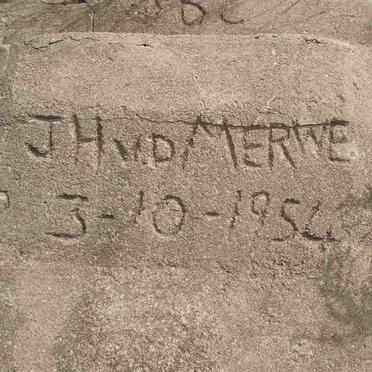 J H v.D MERWE
3-10-1954